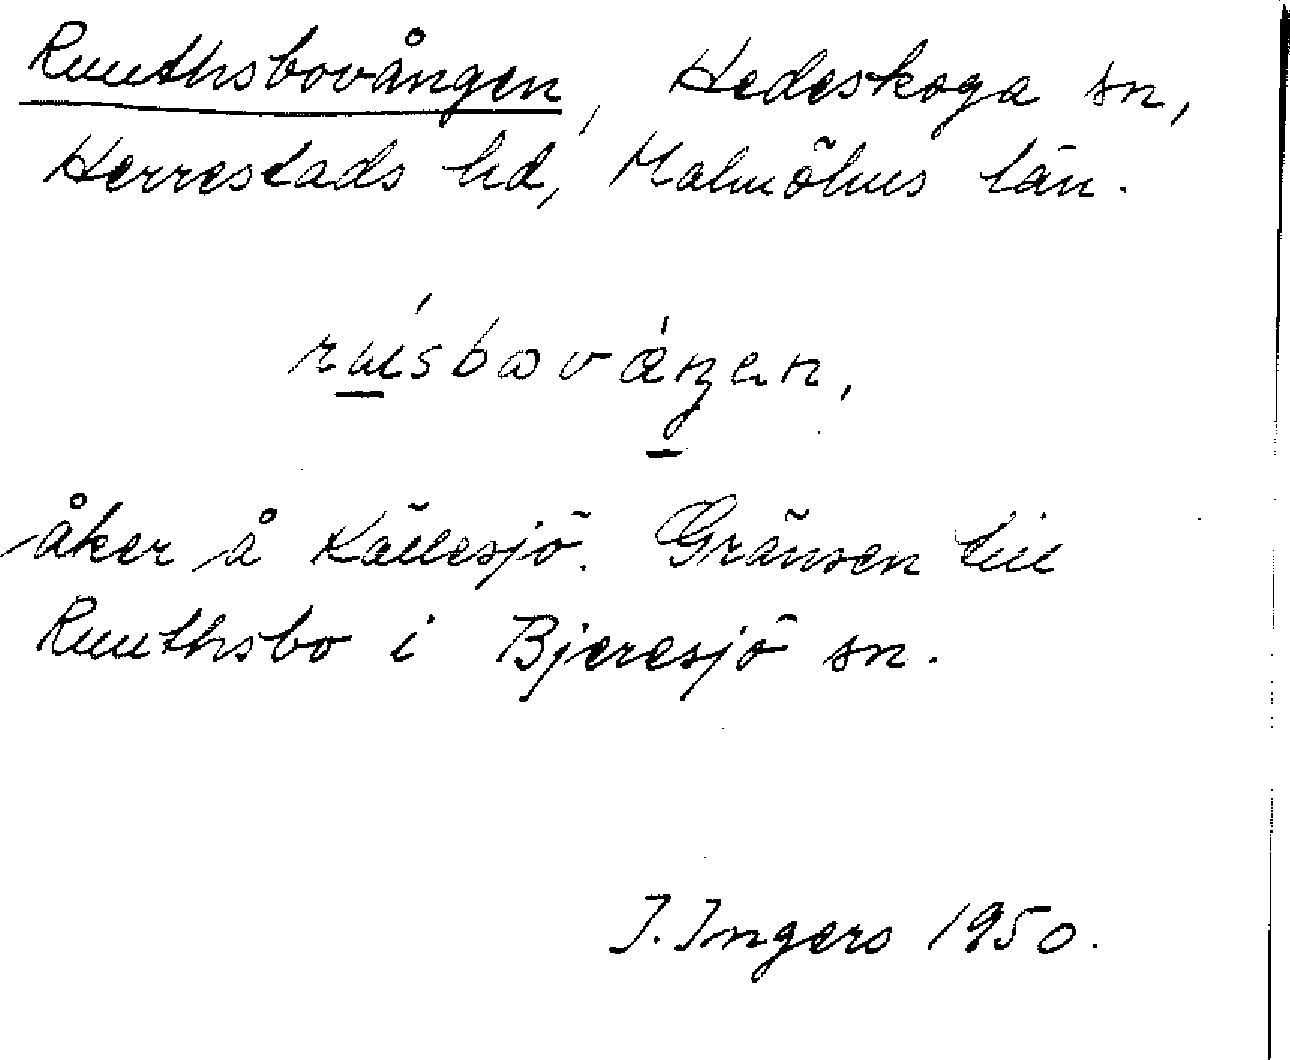 Ruuthsbovången, Hedeskoga sn,
Herrestads hd, Malmöhus län.
åker å Källesjö. Gränsen till
Ruuthsbo i Bjeresjö sn.
I. Ingers 1950.